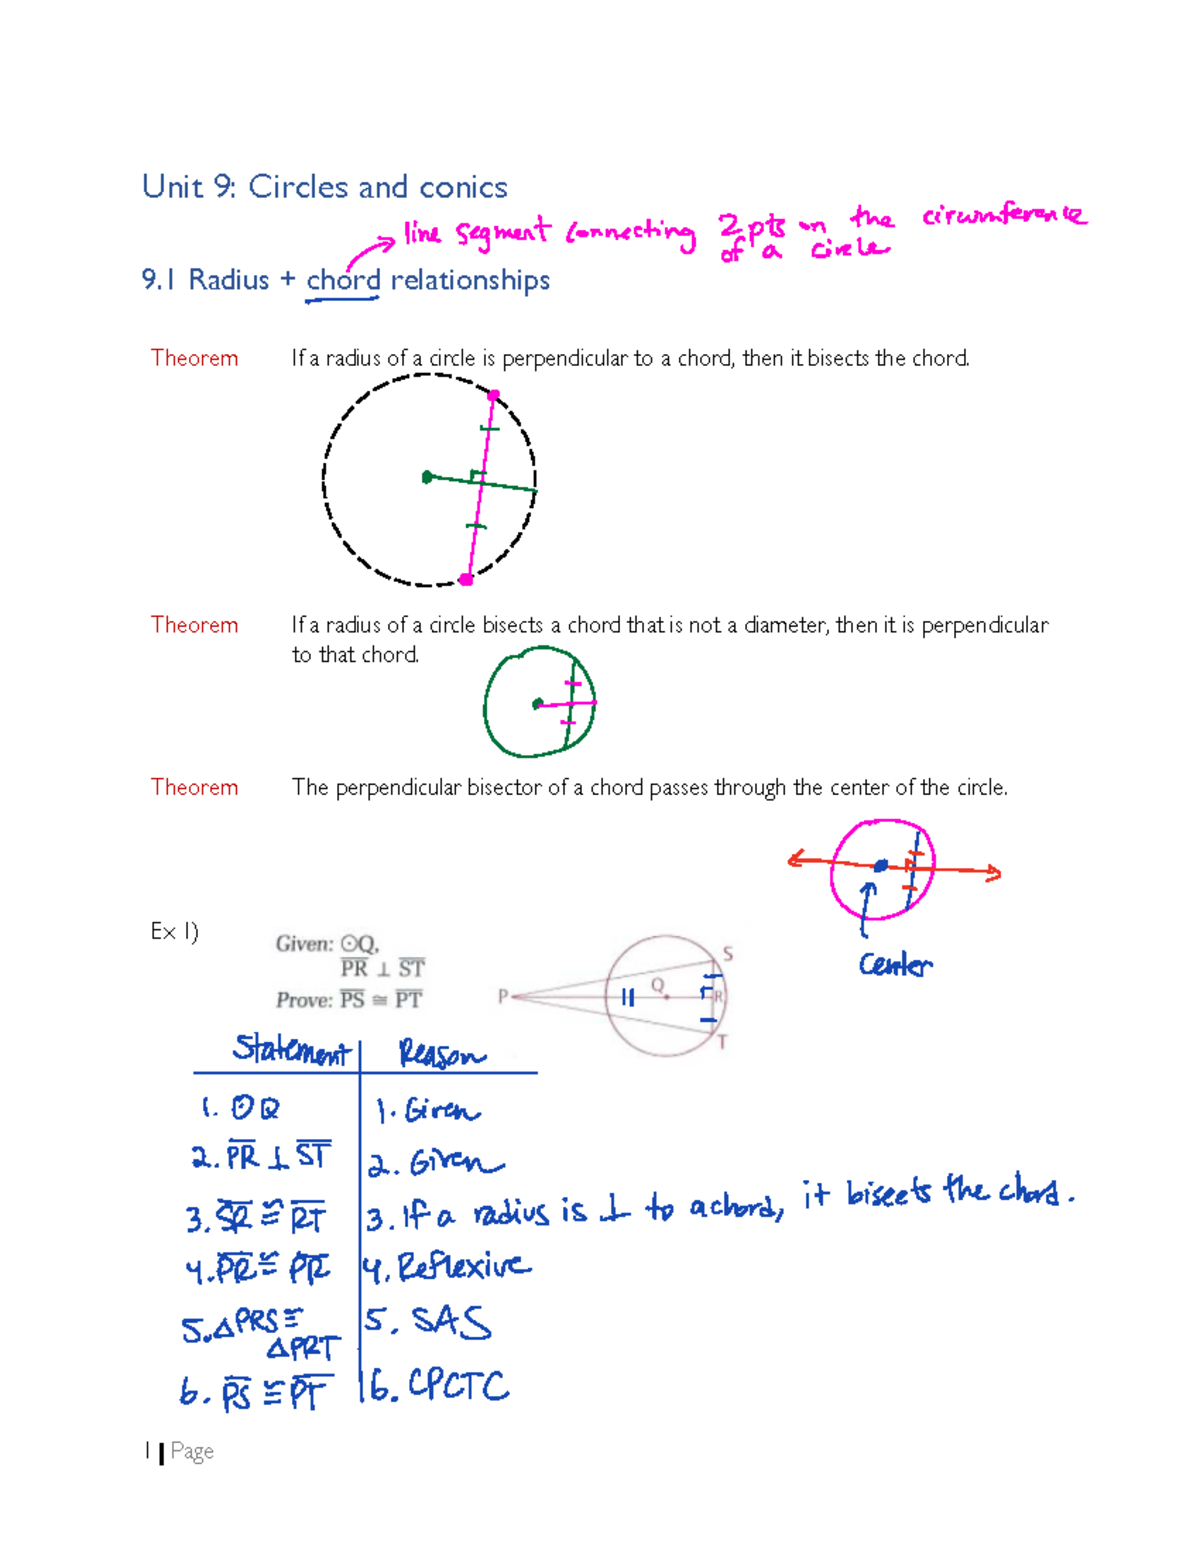 Unit 9: Circles and conics
line segment connecting 2 pts on the circumference
of a circle
9.1 Radius + chord relationships
Theorem If a radius of a circle is perpendicular to a chord, then it bisects the chord.
Theorem If a radius of a circle bisects a chord that is not a diameter, then it is perpendicular
to that chord.
Theorem The perpendicular bisector of a chord passes through the center of the circle.
center
Ex 1)
Given: ⊙Q,
P̅R̅ ⊥ S̅T̅
Prove: P̅S̅ ≅ P̅T̅
P
Q
S
R
T
Statement Reason
1. ⊙Q 1. Given
2. P̅R̅ ⊥ S̅T̅ 2. Given
3. S̅R̅ ≅ R̅T̅ 3. If a radius is ⊥ to a chord, it bisects the chord.
4. P̅R̅ ≅ P̅R̅ 4. Reflexive
5. △PRS ≅ 5. SAS
△PRT
6. P̅S̅ ≅ P̅T̅ 6. CPCTC
1 | Page